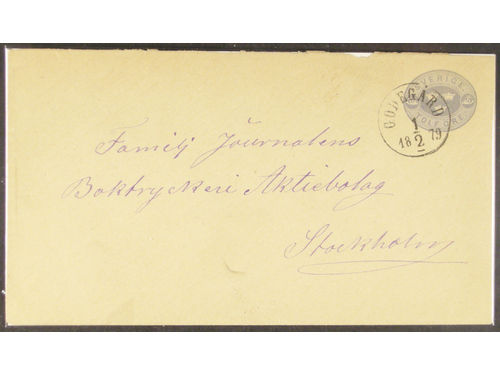 SVERIGE
TOLF ÖRE
GODEGÅRD
1
18 2 79
Familj Journalens
Boktryckeri Aktiebolag
Stockholm